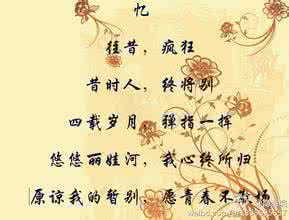 忆
往昔，疯狂
昔时人，终将别
四载岁月，弹指一挥
悠悠丽娃河，我心终所归
原谅我的暂别，愿青春不散场